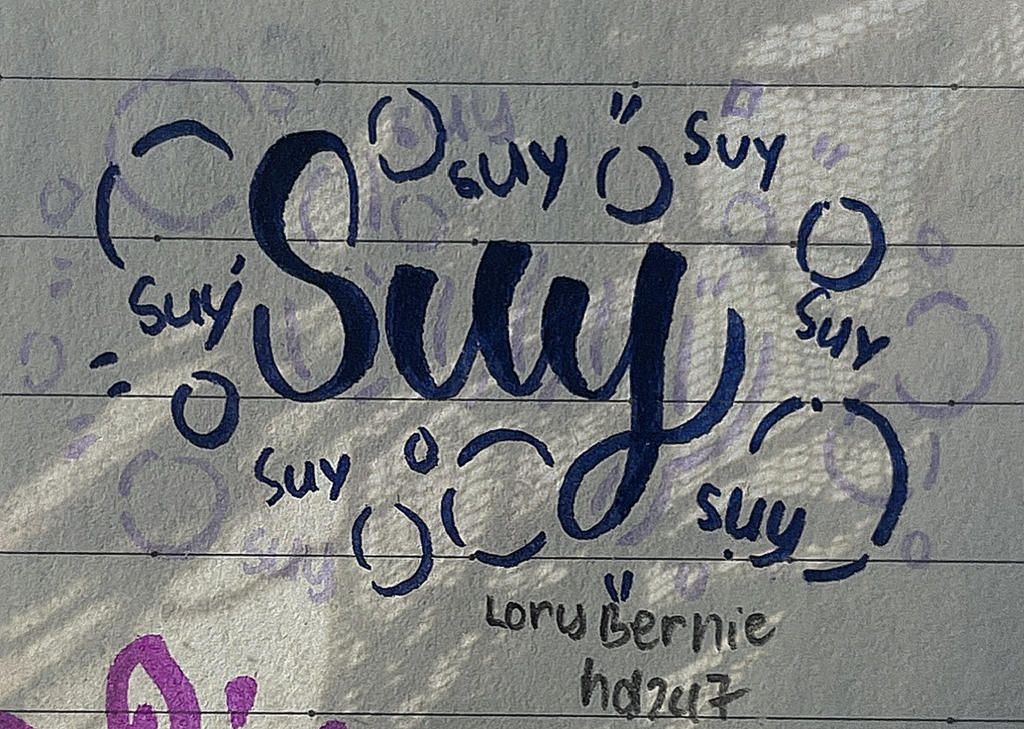 suy
suy
Suy
Suy
Suy
Suy
Suy
suy
Lory Bernie
hd247